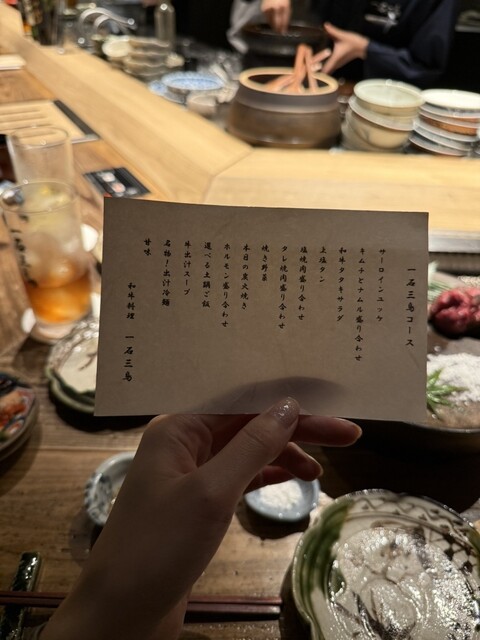 一石三鳥コース
サーロインユッケ
キムチとナムル盛り合わせ
和牛タタキサラダ
上塩タン
塩焼肉盛り合わせ
タレ焼肉盛り合わせ
焼き野菜
本日の炭火焼き
ホルモン盛り合わせ
選べる土鍋ご飯
牛出汁スープ
名物！出汁冷麺
甘味
和牛料理 一石三鳥